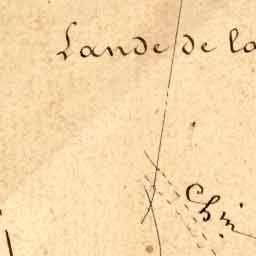 Lande de la
Chin